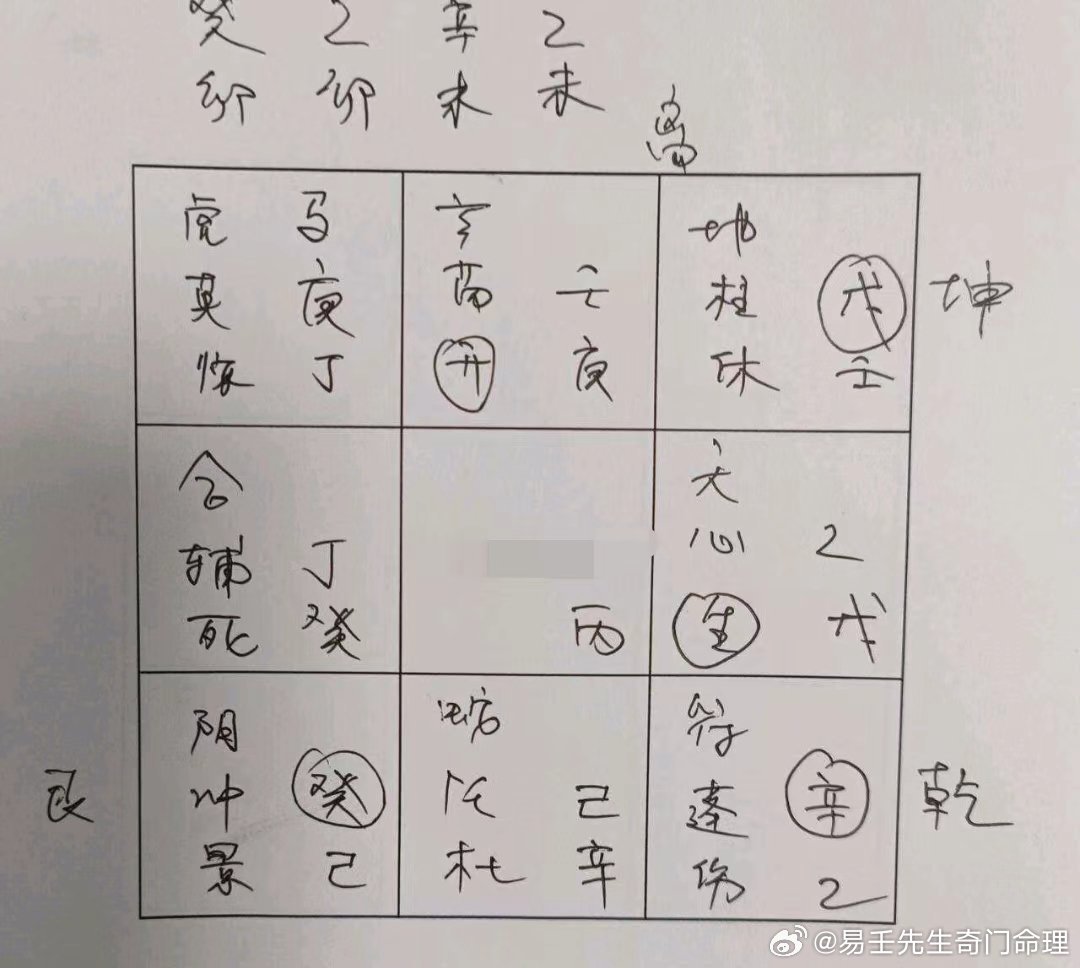 癸 乙 辛 乙
卯 卯 未 未
离
虎 马
英 庚
惊 丁
玄
芮 壬
开 庚
地
柱 戊
休 壬
坤
合
辅 丁
死 癸
丙
天
心 乙
生 戊
艮
阴
冲 癸
景 己
蛇
任 己
杜 辛
符
蓬 辛
伤 乙
乾
@易壬先生奇门命理